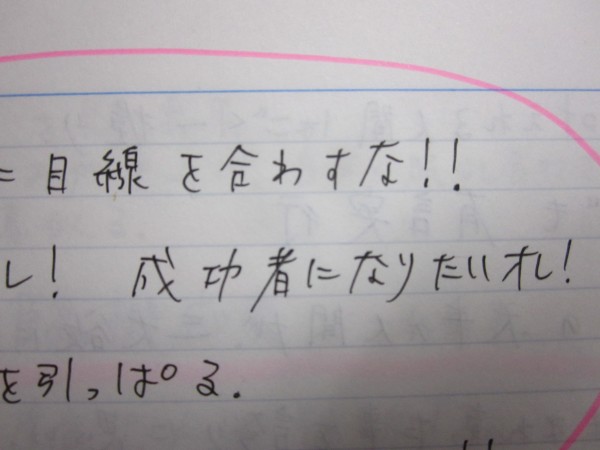 = 目線を合わすな!!
レ! 成功者になりたいオレ!
を引っぱる.